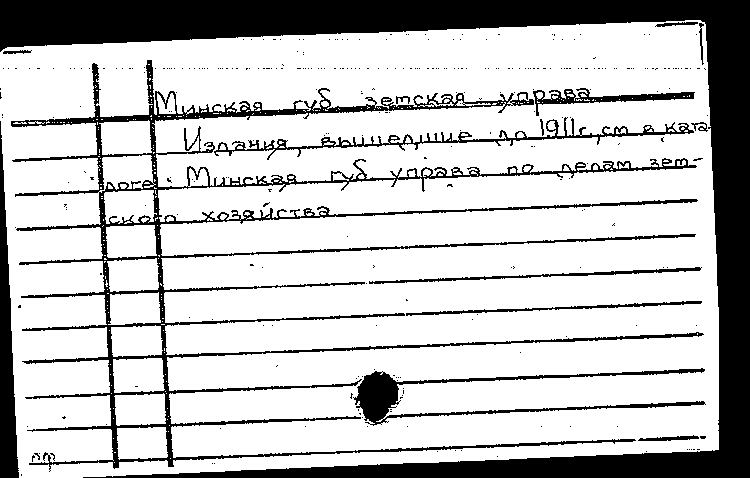 Минская губ. зетская управа
Издания, вышедшие до 1911г, см в ката-
логе: Минская губ. управа по делам зем-
ского хозяйства